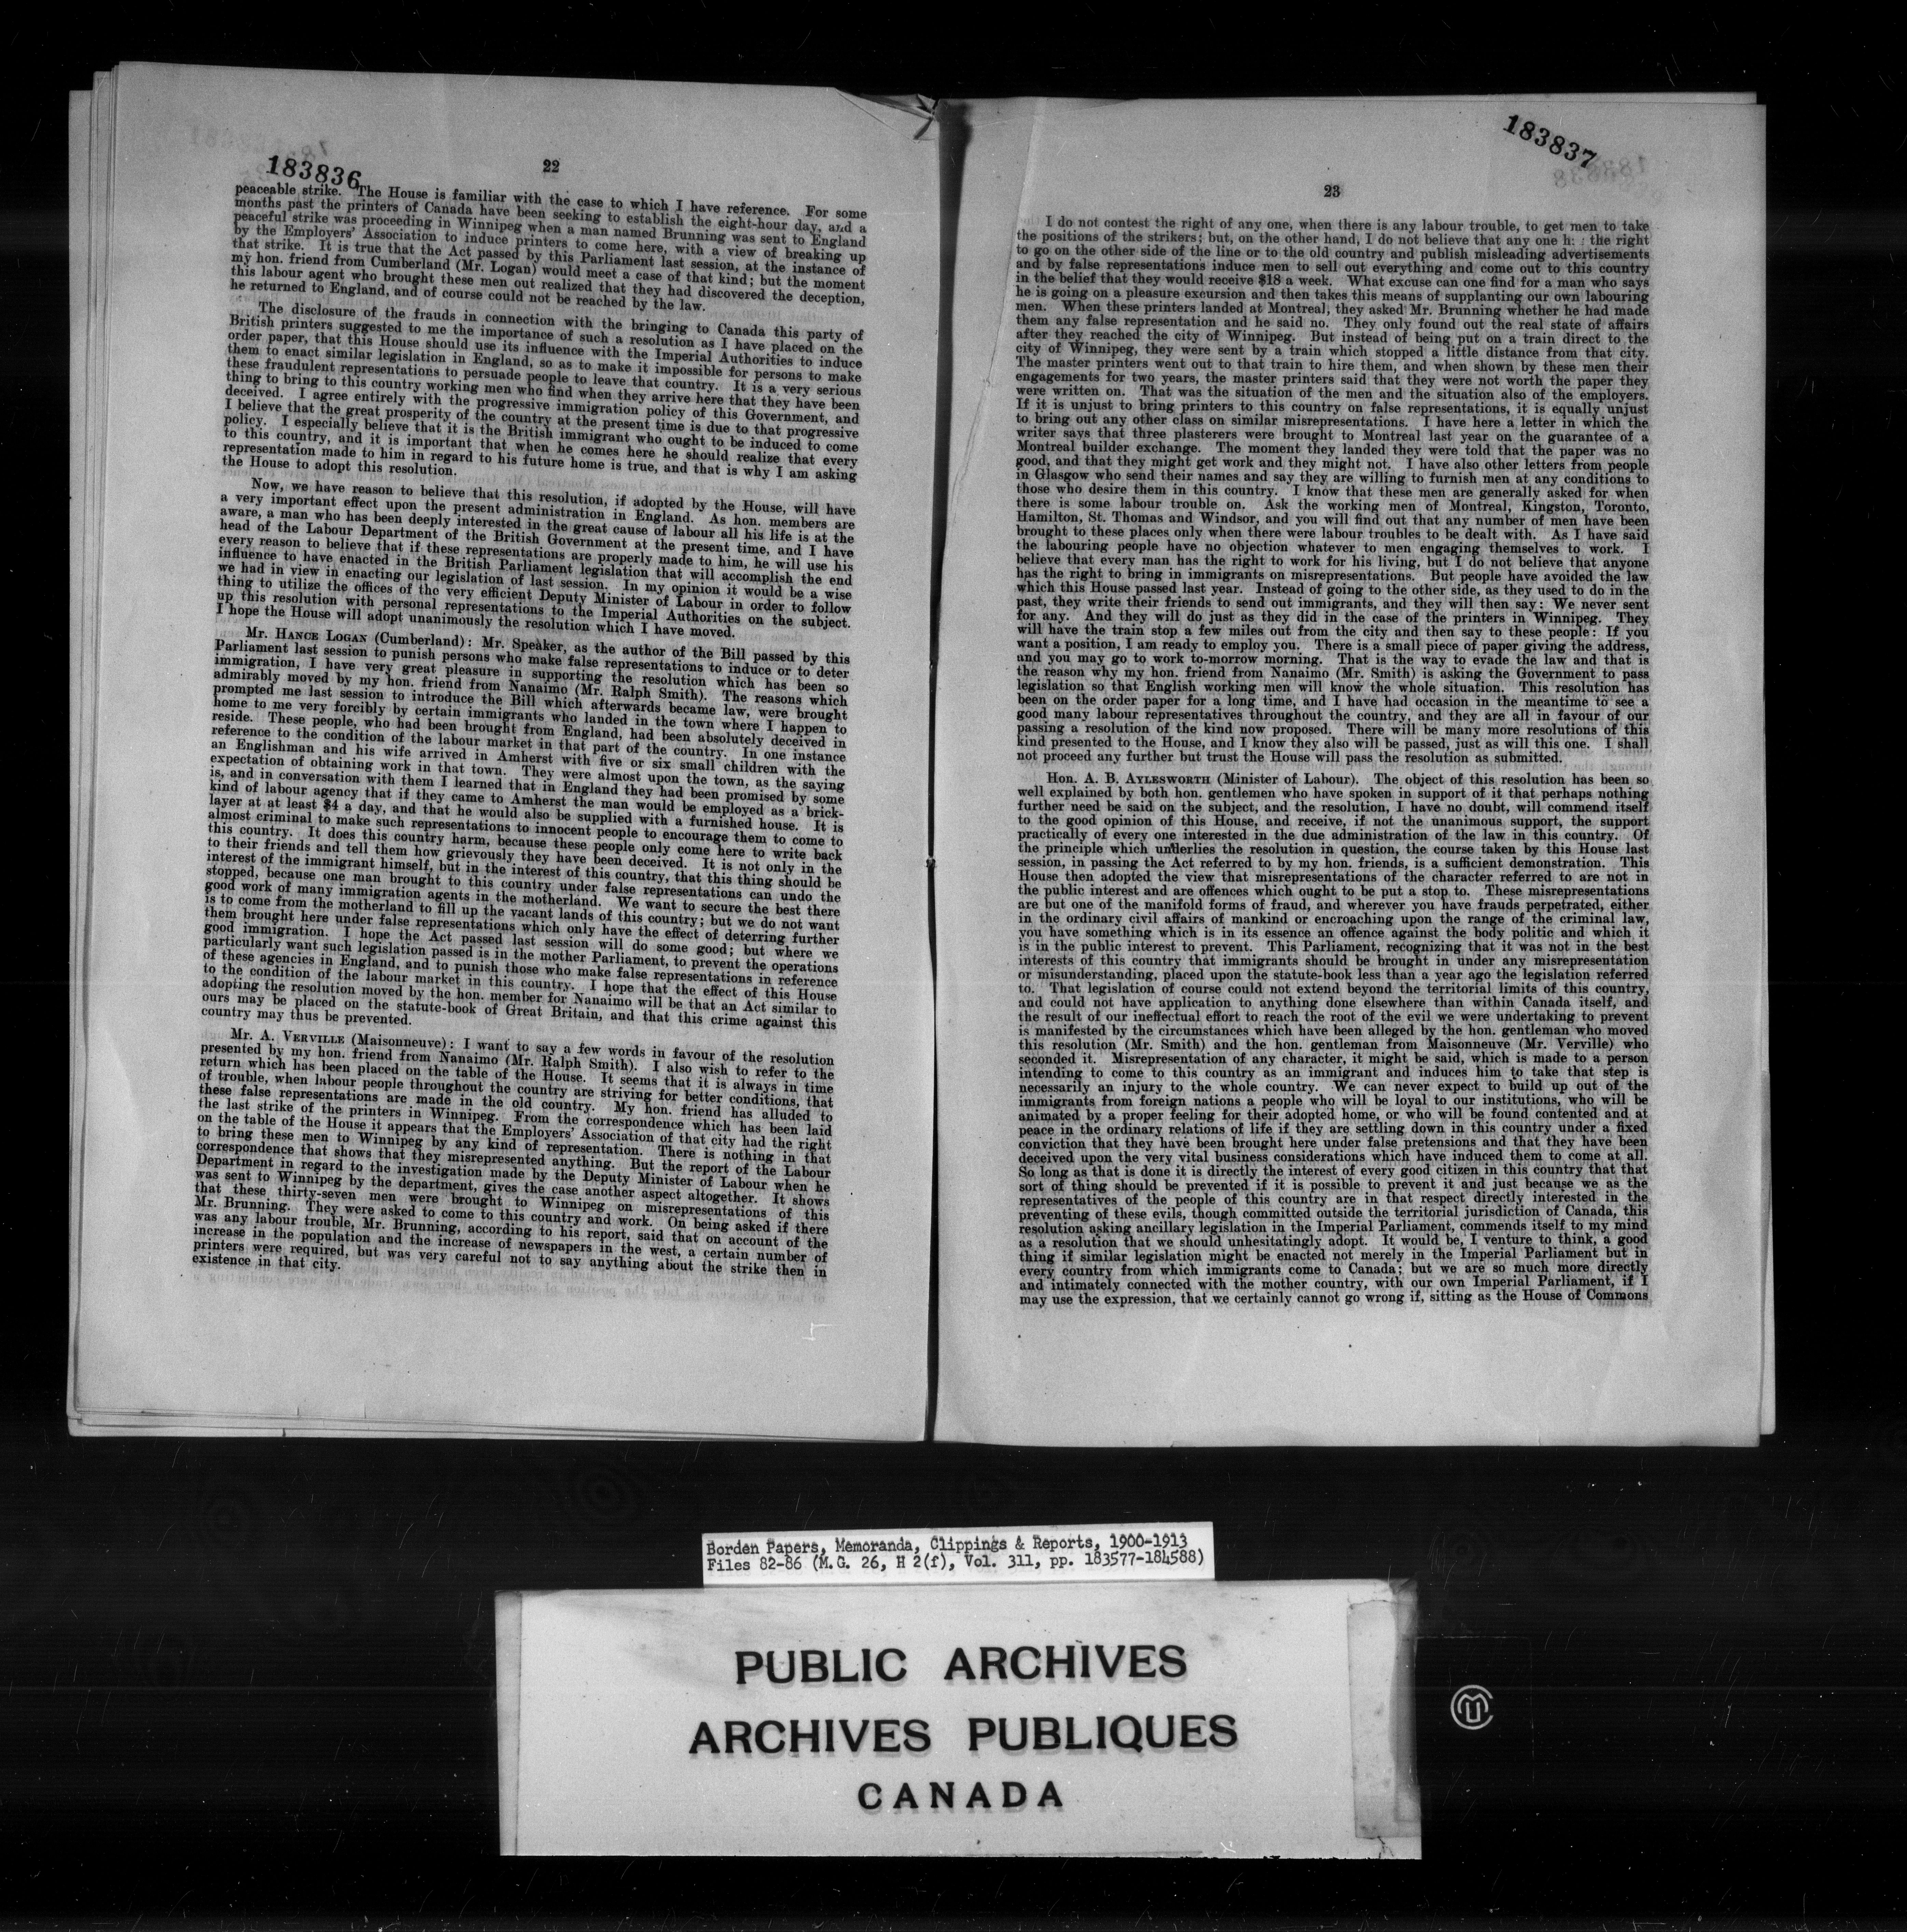 183836
22
peaceable strike. The House is familiar with the case to which I have reference. For some
months past the printers of Canada have been seeking to establish the eight-hour day, and a
peaceful strike was proceeding in Winnipeg when a man named Brunning was sent to England
by the Employers' Association to induce printers to come here, with a view of breaking up
that strike. It is true that the Act passed by this Parliament last session, at the instance of
my hon. friend from Cumberland (Mr. Logan) would meet a case of that kind; but the moment
this labour agent who brought these men out realized that they had discovered the deception,
he returned to England, and of course could not be reached by the law.
The disclosure of the frauds in connection with the bringing to Canada this party of
British printers suggested to me the importance of such a resolution as I have placed on the
order paper, that this House should use its influence with the Imperial Authorities to induce
them to enact similar legislation in England, so as to make it impossible for persons to make
these fraudulent representations to persuade people to leave that country. It is a very serious
thing to bring to this country working men who find when they arrive here that they have been
deceived. I agree entirely with the progressive immigration policy of this Government, and
I believe that the great prosperity of the country at the present time is due to that progressive
policy. I especially believe that it is the British immigrant who ought to be induced to come
to this country, and it is important that when he comes here he should realize that every
representation made to him in regard to his future home is true, and that is why I am asking
the House to adopt this resolution.
Now, we have reason to believe that this resolution, if adopted by the House, will have
a very important effect upon the present administration in England. As hon. members are
aware, a man who has been deeply interested in the great cause of labour all his life is at the
head of the Labour Department of the British Government at the present time, and I have
every reason to believe that if these representations are properly made to him, he will use his
influence to have enacted in the British Parliament legislation that will accomplish the end
we had in view in enacting our legislation of last session. In my opinion it would be a wise
thing to utilize the offices of the very efficient Deputy Minister of Labour in order to follow
up this resolution with personal representations to the Imperial Authorities on the subject.
I hope the House will adopt unanimously the resolution which I have moved.
Mr. HANCE LOGAN (Cumberland): Mr. Speaker, as the author of the Bill passed by this
Parliament last session to punish persons who make false representations to induce or to deter
immigration, I have very great pleasure in supporting the resolution which has been so
admirably moved by my hon. friend from Nanaimo (Mr. Ralph Smith). The reasons which
prompted me last session to introduce the Bill which afterwards became law, were brought
home to me very forcibly by certain immigrants who landed in the town where I happen to
reside. These people, who had been brought from England, had been absolutely deceived in
reference to the condition of the labour market in that part of the country. In one instance
an Englishman and his wife arrived in Amherst with five or six small children with the
expectation of obtaining work in that town. They were almost upon the town, as the saying
is, and in conversation with them I learned that in England they had been promised by some
kind of labour agency that if they came to Amherst the man would be employed as a brick-
layer at at least $4 a day, and that he would also be supplied with a furnished house. It is
almost criminal to make such representations to innocent people to encourage them to come to
this country. It does this country harm, because these people only come here to write back
to their friends and tell them how grievously they have been deceived. It is not only in the
interest of the immigrant himself, but in the interest of this country, that this thing should be
stopped, because one man brought to this country under false representations can undo the
good work of many immigration agents in the motherland. We want to secure the best there
is to come from the motherland to fill up the vacant lands of this country; but we do not want
them brought here under false representations which only have the effect of deterring further
good immigration. I hope the Act passed last session will do some good; but where we
particularly want such legislation passed is in the mother Parliament, to prevent the operations
of these agencies in England, and to punish those who make false representations in reference
to the condition of the labour market in this country. I hope that the effect of this House
adopting the resolution moved by the hon. member for Nanaimo will be that an Act similar to
ours may be placed on the statute-book of Great Britain, and that this crime against this
country may thus be prevented.
Mr. A. VERVILLE (Maisonneuve): I want to say a few words in favour of the resolution
presented by my hon. friend from Nanaimo (Mr. Ralph Smith). I also wish to refer to the
return which has been placed on the table of the House. It seems that it is always in time
of trouble, when labour people throughout the country are striving for better conditions, that
these false representations are made in the old country. My hon. friend has alluded to
the last strike of the printers in Winnipeg. From the correspondence which has been laid
on the table of the House it appears that the Employers' Association of that city had the right
to bring these men to Winnipeg by any kind of representation. There is nothing in that
correspondence that shows that they misrepresented anything. But the report of the Labour
Department in regard to the investigation made by the Deputy Minister of Labour when he
was sent to Winnipeg by the department, gives the case another aspect altogether. It shows
that these thirty-seven men were brought to Winnipeg on misrepresentations of this
Mr. Brunning. They were asked to come to this country and work. On being asked if there
was any labour trouble, Mr. Brunning, according to his report, said that on account of the
increase in the population and the increase of newspapers in the west, a certain number of
printers were required, but was very careful not to say anything about the strike then in
existence in that city.
183837
23
I do not contest the right of any one, when there is any labour trouble, to get men to take
the positions of the strikers; but, on the other hand, I do not believe that any one h: : the right
to go on the other side of the line or to the old country and publish misleading advertisements
and by false representations induce men to sell out everything and come out to this country
in the belief that they would receive $18 a week. What excuse can one find for a man who says
he is going on a pleasure excursion and then takes this means of supplanting our own labouring
men. When these printers landed at Montreal, they asked Mr. Brunning whether he had made
them any false representation and he said no. They only found out the real state of affairs
after they reached the city of Winnipeg. But instead of being put on a train direct to the
city of Winnipeg, they were sent by a train which stopped a little distance from that city.
The master printers went out to that train to hire them, and when shown by these men their
engagements for two years, the master printers said that they were not worth the paper they
were written on. That was the situation of the men and the situation also of the employers.
If it is unjust to bring printers to this country on false representations, it is equally unjust
to bring out any other class on similar misrepresentations. I have here a letter in which the
writer says that three plasterers were brought to Montreal last year on the guarantee of a
Montreal builder exchange. The moment they landed they were told that the paper was no
good, and that they might get work and they might not. I have also other letters from people
in Glasgow who send their names and say they are willing to furnish men at any conditions to
those who desire them in this country. I know that these men are generally asked for when
there is some labour trouble on. Ask the working men of Montreal, Kingston, Toronto,
Hamilton, St. Thomas and Windsor, and you will find out that any number of men have been
brought to these places only when there were labour troubles to be dealt with. As I have said
the labouring people have no objection whatever to men engaging themselves to work. I
believe that every man has the right to work for his living, but I do not believe that anyone
has the right to bring in immigrants on misrepresentations. But people have avoided the law
which this House passed last year. Instead of going to the other side, as they used to do in the
past, they write their friends to send out immigrants, and they will then say: We never sent
for any. And they will do just as they did in the case of the printers in Winnipeg. They
will have the train stop a few miles out from the city and then say to these people: If you
want a position, I am ready to employ you. There is a small piece of paper giving the address,
and you may go to work to-morrow morning. That is the way to evade the law and that is
the reason why my hon. friend from Nanaimo (Mr. Smith) is asking the Government to pass
legislation so that English working men will know the whole situation. This resolution has
been on the order paper for a long time, and I have had occasion in the meantime to see a
good many labour representatives throughout the country, and they are all in favour of our
passing a resolution of the kind now proposed. There will be many more resolutions of this
kind presented to the House, and I know they also will be passed, just as will this one. I shall
not proceed any further but trust the House will pass the resolution as submitted.
Hon. A. B. AYLESWORTH (Minister of Labour). The object of this resolution has been so
well explained by both hon. gentlemen who have spoken in support of it that perhaps nothing
further need be said on the subject, and the resolution, I have no doubt, will commend itself
to the good opinion of this House, and receive, if not the unanimous support, the support
practically of every one interested in the due administration of the law in this country. Of
the principle which underlies the resolution in question, the course taken by this House last
session, in passing the Act referred to by my hon. friends, is a sufficient demonstration. This
House then adopted the view that misrepresentations of the character referred to are not in
the public interest and are offences which ought to be put a stop to. These misrepresentations
are but one of the manifold forms of fraud, and wherever you have frauds perpetrated, either
in the ordinary civil affairs of mankind or encroaching upon the range of the criminal law,
you have something which is in its essence an offence against the body politic and which it
is in the public interest to prevent. This Parliament, recognizing that it was not in the best
interests of this country that immigrants should be brought in under any misrepresentation
or misunderstanding, placed upon the statute-book less than a year ago the legislation referred
to. That legislation of course could not extend beyond the territorial limits of this country,
and could not have application to anything done elsewhere than within Canada itself, and
the result of our ineffectual effort to reach the root of the evil we were undertaking to prevent
is manifested by the circumstances which have been alleged by the hon. gentleman who moved
this resolution (Mr. Smith) and the hon. gentleman from Maisonneuve (Mr. Verville) who
seconded it. Misrepresentation of any character, it might be said, which is made to a person
intending to come to this country as an immigrant and induces him to take that step is
necessarily an injury to the whole country. We can never expect to build up out of the
immigrants from foreign nations a people who will be loyal to our institutions, who will be
animated by a proper feeling for their adopted home, or who will be found contented and at
peace in the ordinary relations of life if they are settling down in this country under a fixed
conviction that they have been brought here under false pretensions and that they have been
deceived upon the very vital business considerations which have induced them to come at all.
So long as that is done it is directly the interest of every good citizen in this country that that
sort of thing should be prevented if it is possible to prevent it and just because we as the
representatives of the people of this country are in that respect directly interested in the
preventing of these evils, though committed outside the territorial jurisdiction of Canada, this
resolution asking ancillary legislation in the Imperial Parliament, commends itself to my mind
as a resolution that we should unhesitatingly adopt. It would be, I venture to think, a good
thing if similar legislation might be enacted not merely in the Imperial Parliament but in
every country from which immigrants come to Canada; but we are so much more directly
and intimately connected with the mother country, with our own Imperial Parliament, if I
may use the expression, that we certainly cannot go wrong if, sitting as the House of Commons
Borden Papers, Memoranda, Clippings & Reports, 1900-1913
Files 82-86 (M.G. 26, H 2(f), Vol. 311, pp. 183577-184588)
PUBLIC ARCHIVES
ARCHIVES PUBLIQUES
CANADA